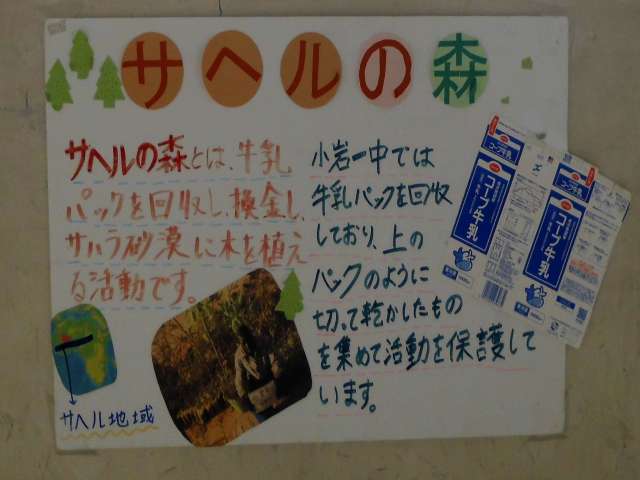 サヘルの森
サヘルの森とは、牛乳
パックを回収し、換金し、
サハラ砂漠に木を植え
る活動です。
サヘル地域
小岩一中では
牛乳パックを回収
しており、上の
パックのように
切って乾かしたもの
を集めて活動を保護して
います。
コープ牛乳
コープ牛乳
コープ牛乳
コープ牛乳